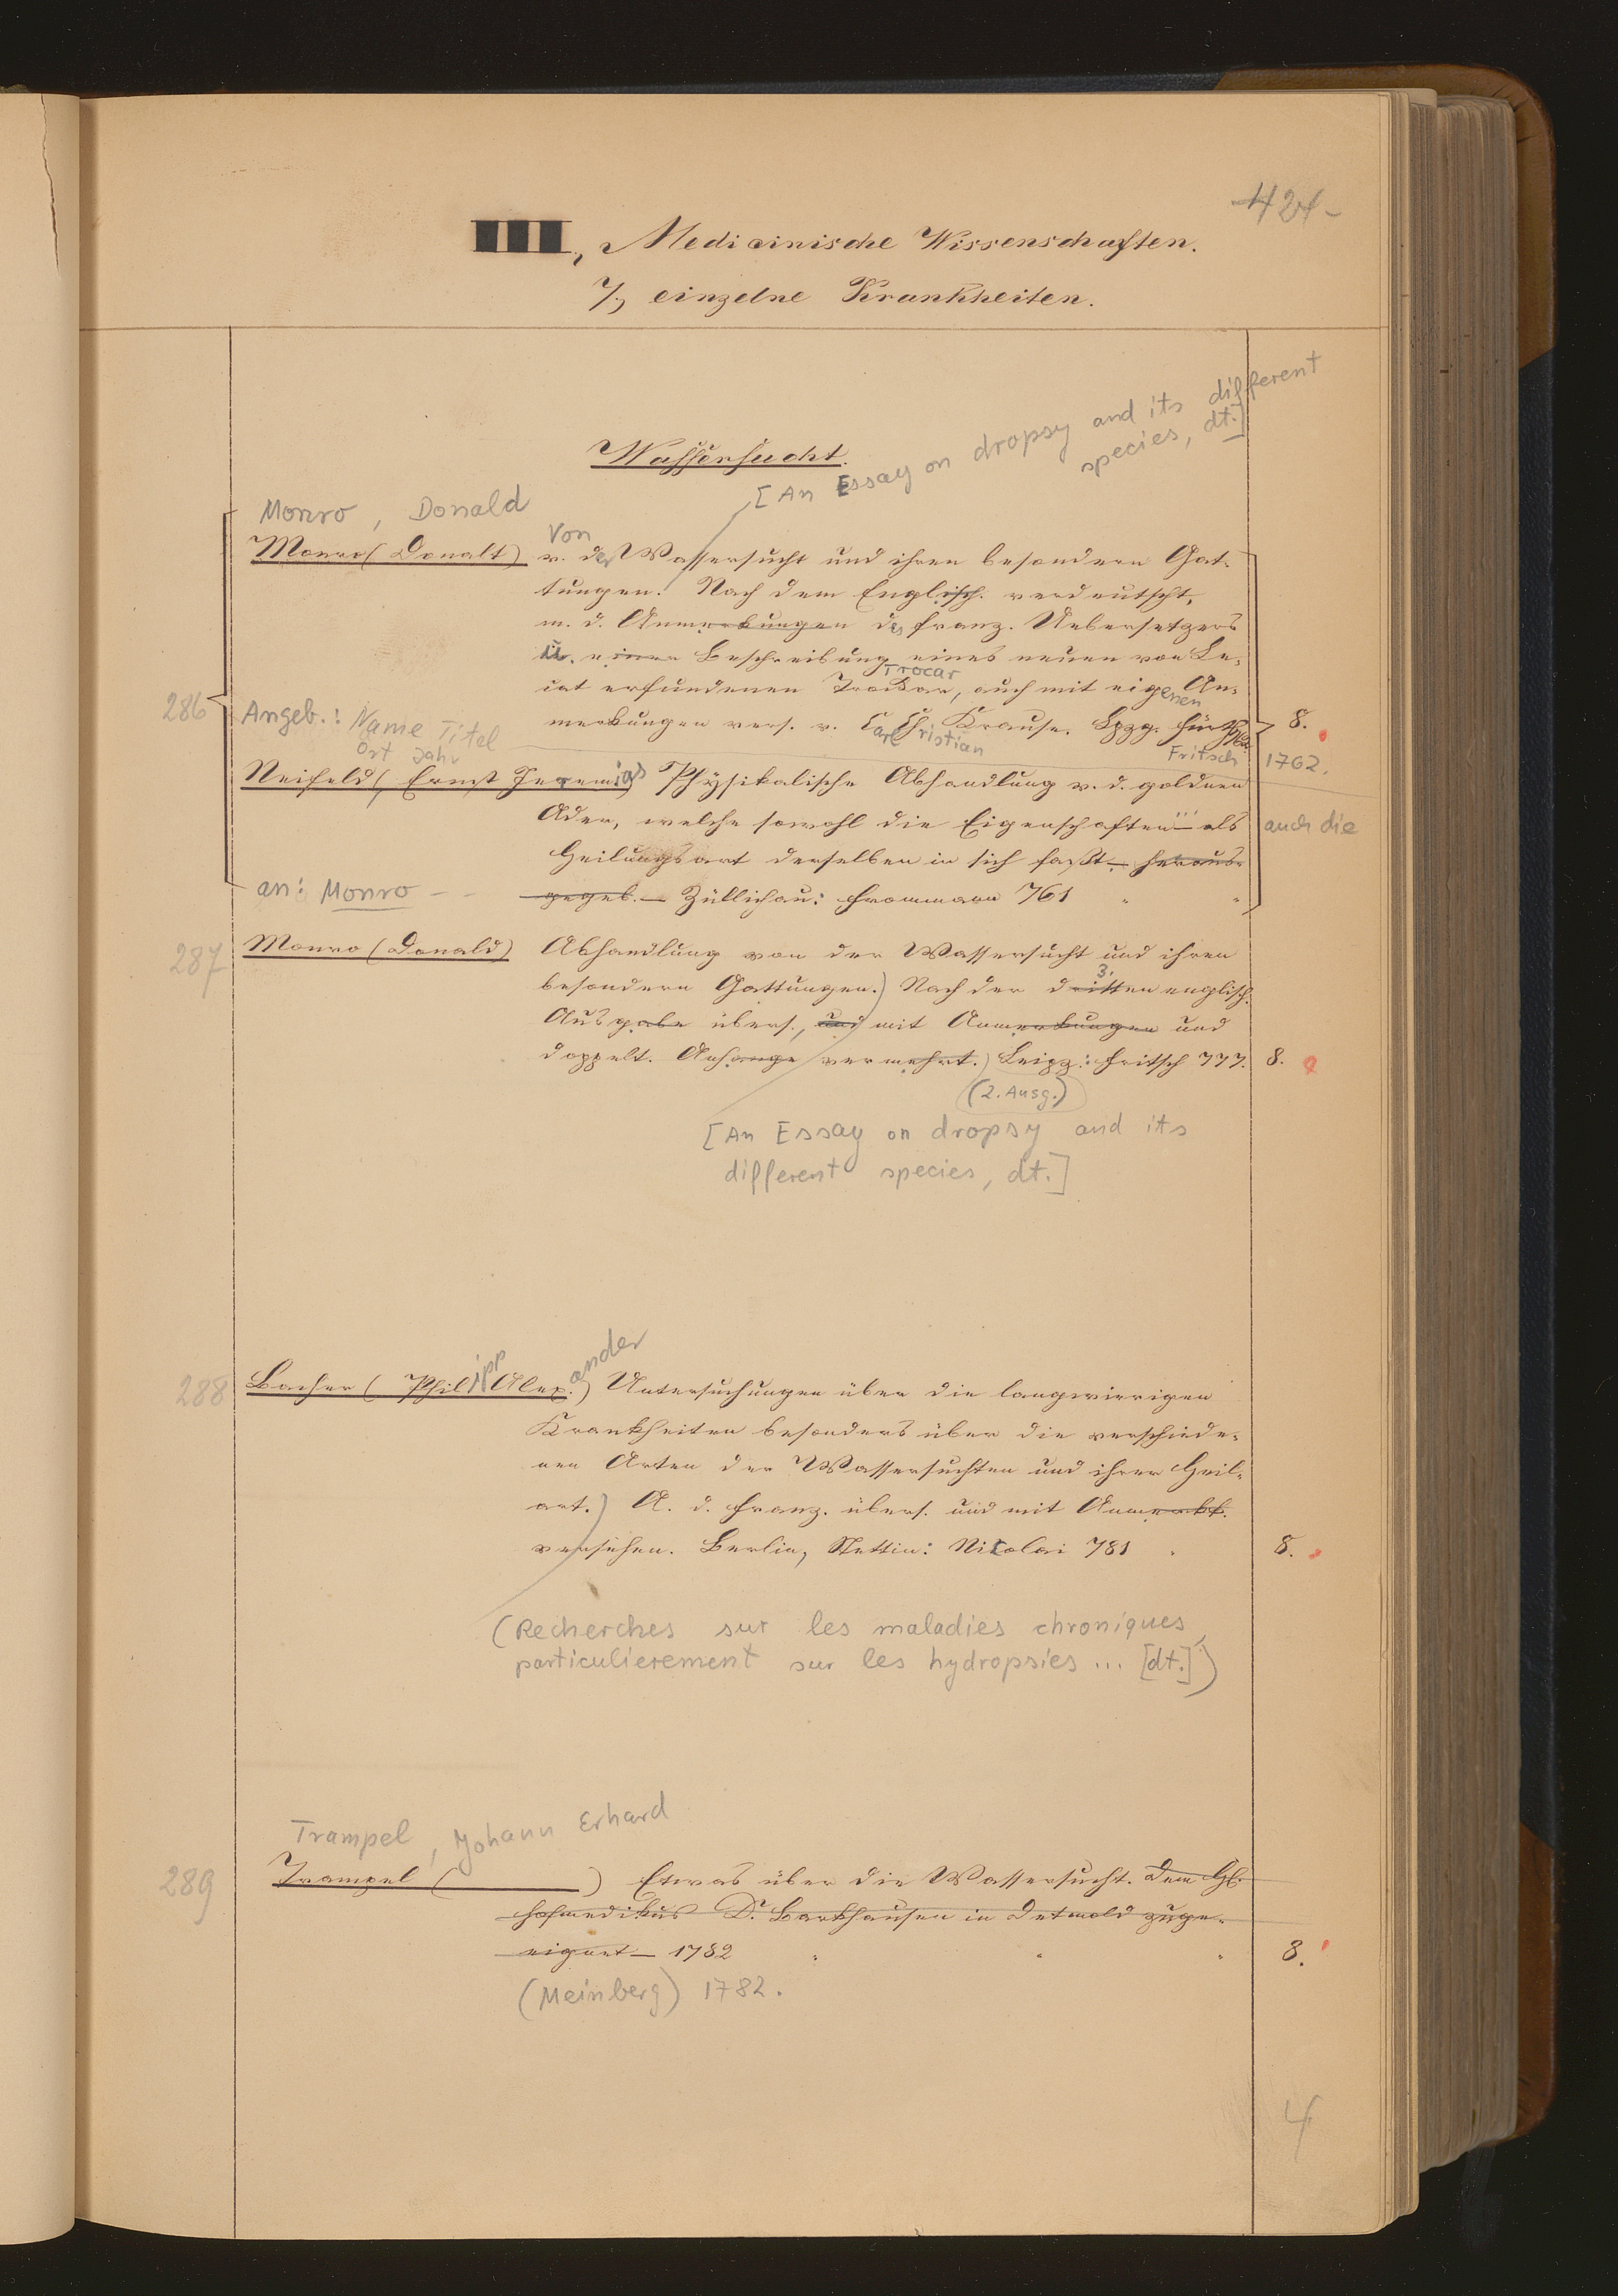 -424-
III, Medicinische Wissenschaften.
7, einzelne Krankheiten.
Wassersucht.
[An Essay on dropsy and its different
species, dt.]
Monro, Donald
Von
Monro (Donalt) v. der Wassersucht und ihren besondern Gat-
tungen. Nach dem Englisch. verdeutscht,
m. d. Anmerkungen des franz. Uebersetzers
u. einer Beschreibung eines neuen von Le-
Trocar
cat erfundenen Troikar, auch mit eigenen An-
286 Angeb.: Name Titel merkungen vers. v. Carl Christian Krause. Lpzg. 8.
Ort Jahr Fritsch 1762.
Neifeld (Ernst Jeremias) Physikalische Abhandlung v. d. goldnen
Ader, welche sowohl die Eigenschaften ... als auch die
Heilungsart derselben in sich faßt - heraus-
an: Monro - - gegeb. - Züllichau: Frommann 761 " "
287 Monro (Donald) Abhandlung von der Wassersucht und ihren
3.
besondern Gattungen.) Nach der dritten englisch.
Ausgabe übers., und mit Anmerkungen und
doppelt. Anhange vermehrt.) Leipz: Fritsch 777. 8.
(2. Ausg.)
[An Essay on dropsy and its
different species, dt.]
288 Bacher (Philipp Alexander) Untersuchungen über die langwierigen
Krankheiten besonders über die verschiede-
nen Arten der Wassersuchten und ihrer Heil-
art.) A. d. Franz. übers. und mit Anmerkk.
versehen. Berlin, Stettin: Nicolai 781 " 8.
(Recherches sur les maladies chroniques,
particulierement sur les hydropsies ... [dt.])
Trampel, Johann Erhard
289 Trampel ( ) Etwas über die Wassersucht. Dem H.
Hofmedikus Dr. Barkhausen in Detmold zuge-
eignet - 1782 " " " 8.
(Meinberg) 1782.
4